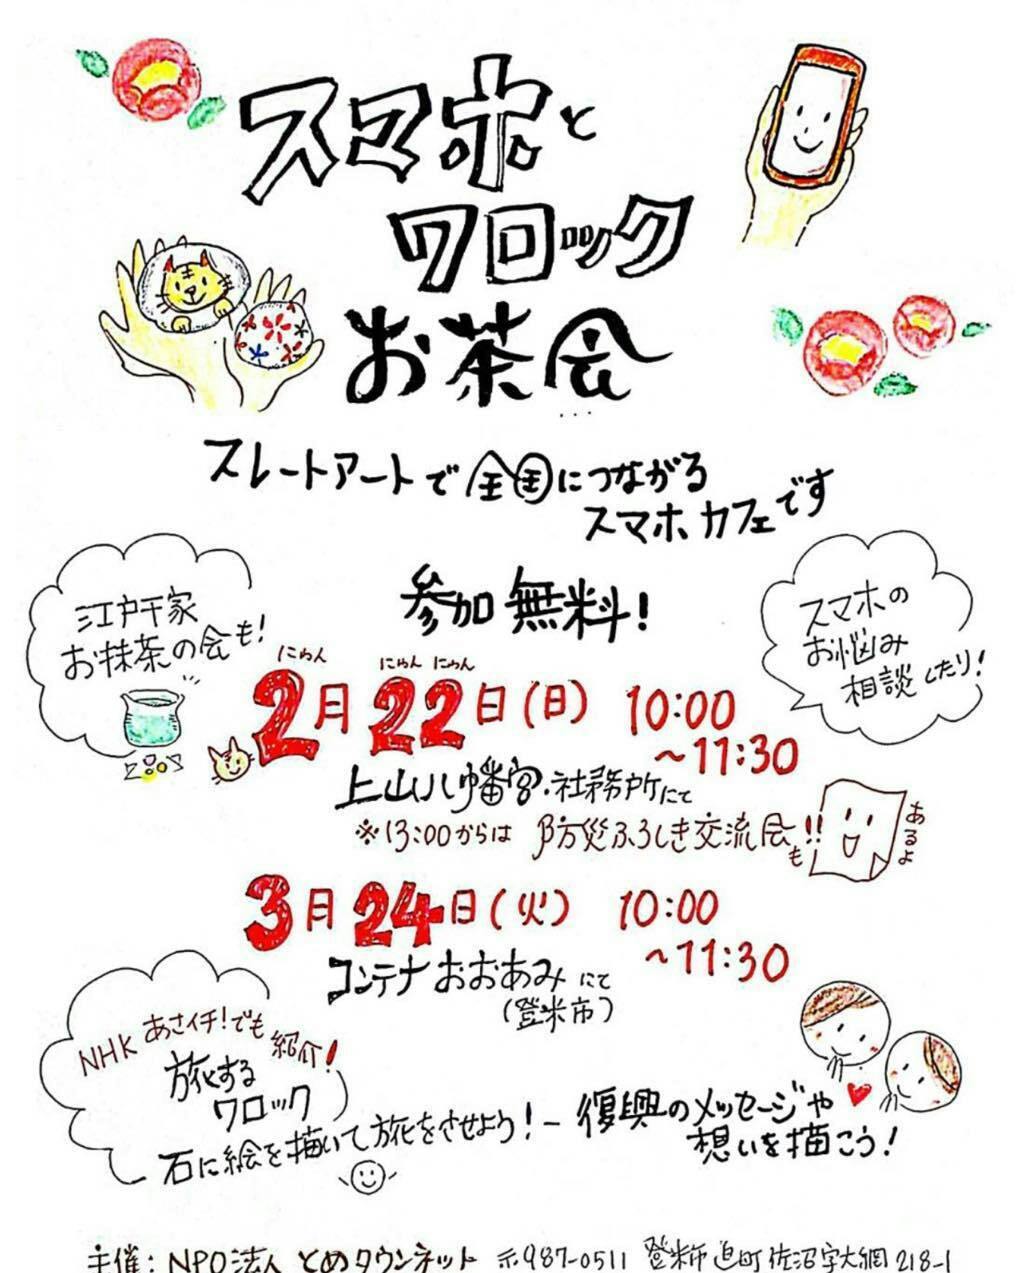 スマホと
ワロック
お茶会
スレートアートで全国につながる
スマホカフェです
江戸千家
お抹茶の会も!
参加無料!
スマホの
お悩み
相談したり!
にゃん にゃん にゃん
2月22日(日) 10:00
~11:30
上山八幡宮・社務所にて
※13:00からは 防災ふろしき交流会も!!
あるよ
3月24日(火) 10:00
~11:30
コンテナおおあみにて
(登米市)
NHKあさイチ!でも紹介!
旅する
ワロック
石に絵を描いて旅をさせよう!-復興のメッセージや
想いを描こう!
主催:NPO法人とめタウンネット 〒987-0511 登米市迫町佐沼字大網218-1